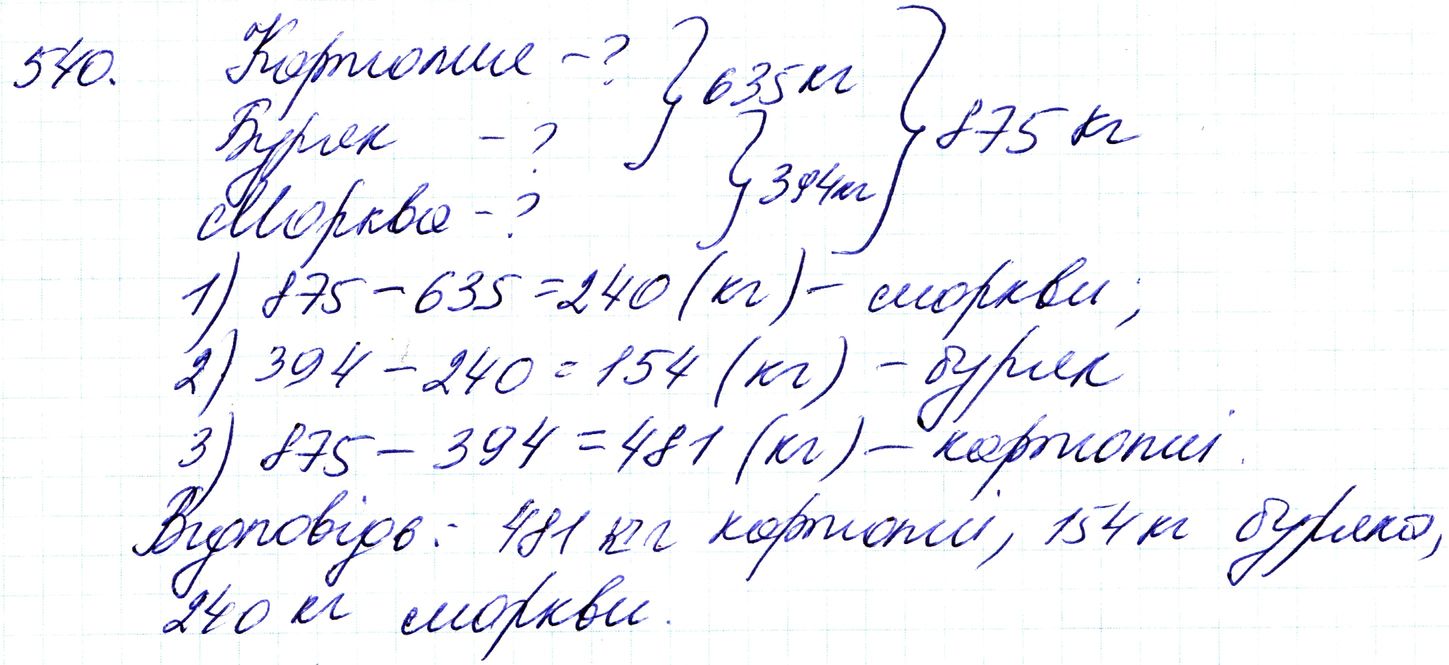 540. Картопля - ? } 635 кг } 875 кг
Буряк - ?
Морква - ? } 394 кг
1) 875 - 635 = 240 (кг) - моркви;
2) 394 - 240 = 154 (кг) - буряк
3) 875 - 394 = 481 (кг) - картоплі.
Відповідь: 481 кг картоплі, 154 кг буряка,
240 кг моркви.